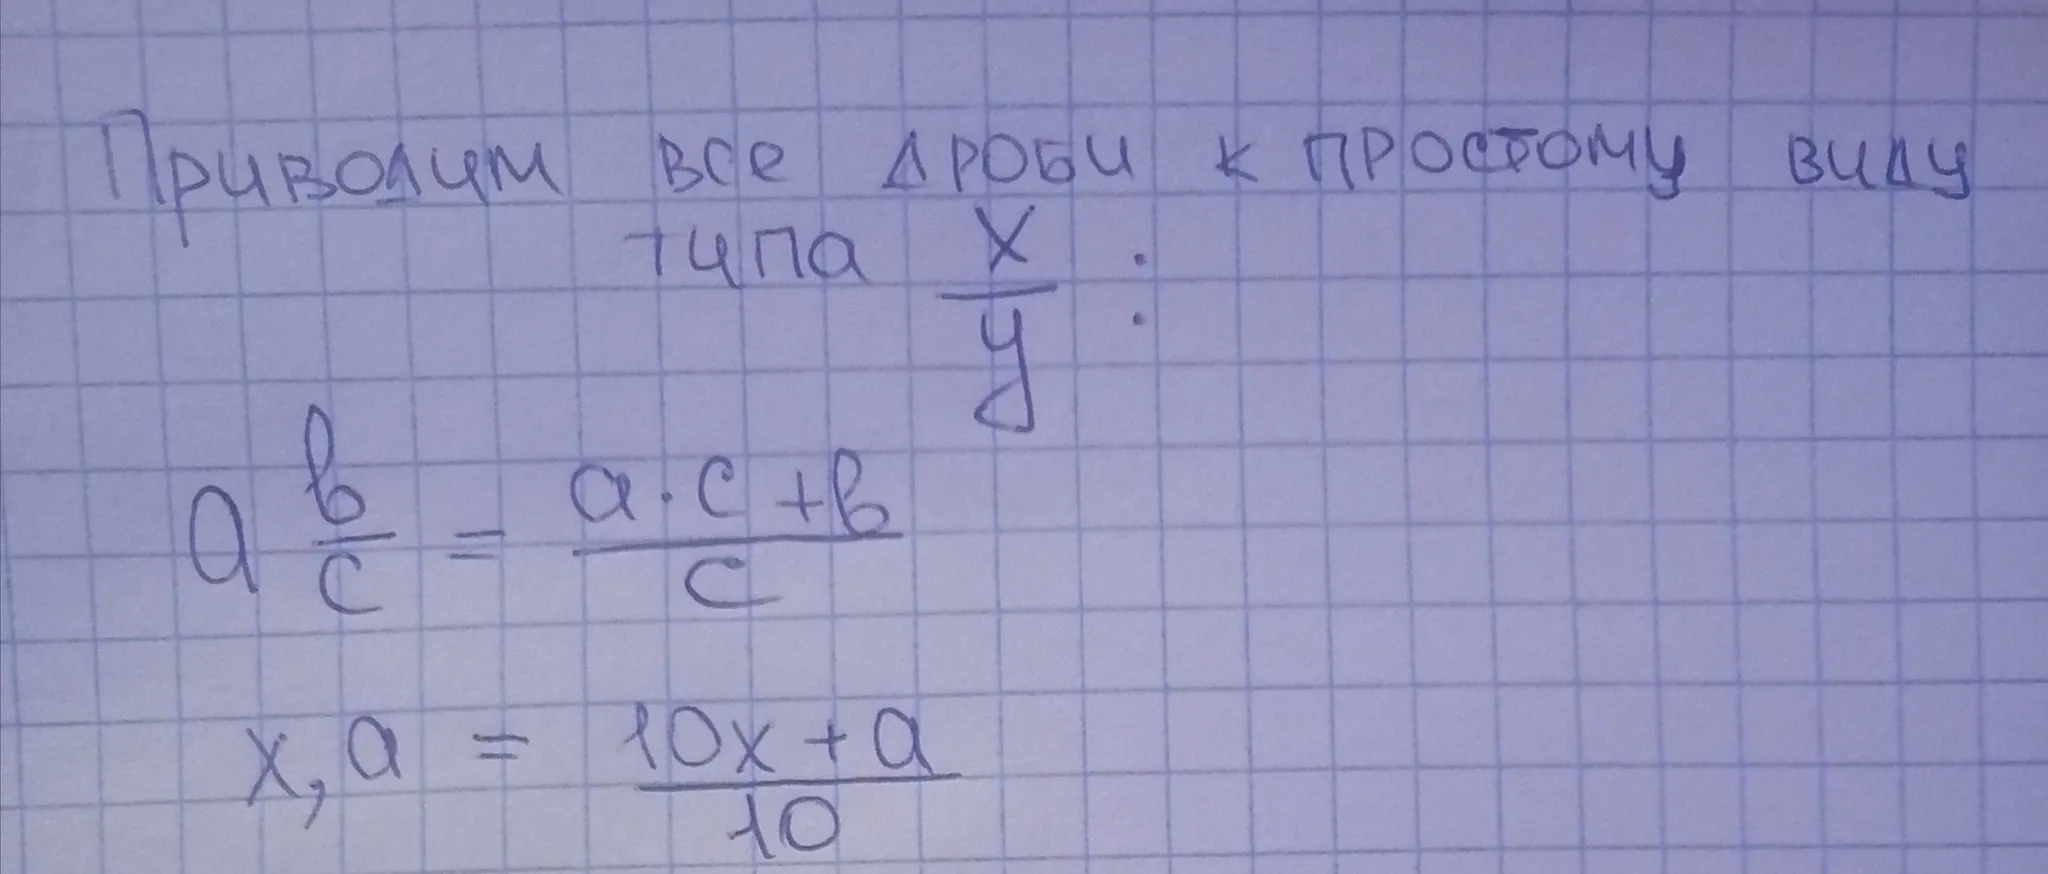 Приводим все дроби к простому виду
типа x/y :
a b/c = a·c+b/c
x,a = 10x+a/10